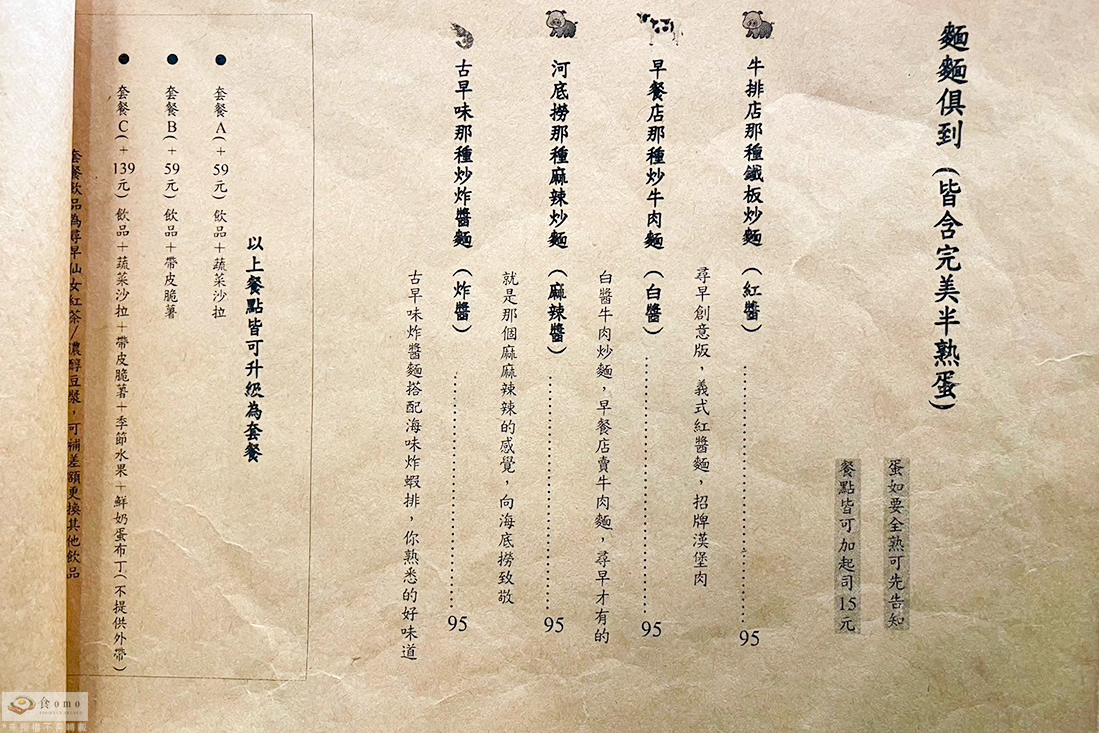 麵麵俱到 (皆含完美半熟蛋)
蛋如要全熟可先告知
餐點皆可加起司15元
牛排店那種鐵板炒麵 (紅醬)..........95
尋早創意版，義式紅醬麵，招牌漢堡肉
早餐店那種炒牛肉麵 (白醬)..........95
白醬牛肉炒麵，早餐店賣牛肉麵，尋早才有的
河底撈那種麻辣炒麵 (麻辣醬)..........95
就是那個麻麻辣辣的感覺，向海底撈致敬
古早味那種炒炸醬麵 (炸醬)..........95
古早味炸醬麵搭配海味炸蝦排，你熟悉的好味道
以上餐點皆可升級為套餐
● 套餐A(+59元) 飲品+蔬菜沙拉
● 套餐B(+59元) 飲品+帶皮脆薯
● 套餐C(+139元) 飲品+蔬菜沙拉+帶皮脆薯+季節水果+鮮奶蛋布丁(不提供外帶)
套餐飲品為尋早仙女紅茶/濃醇豆漿，可補差額更換其他飲品
食omo